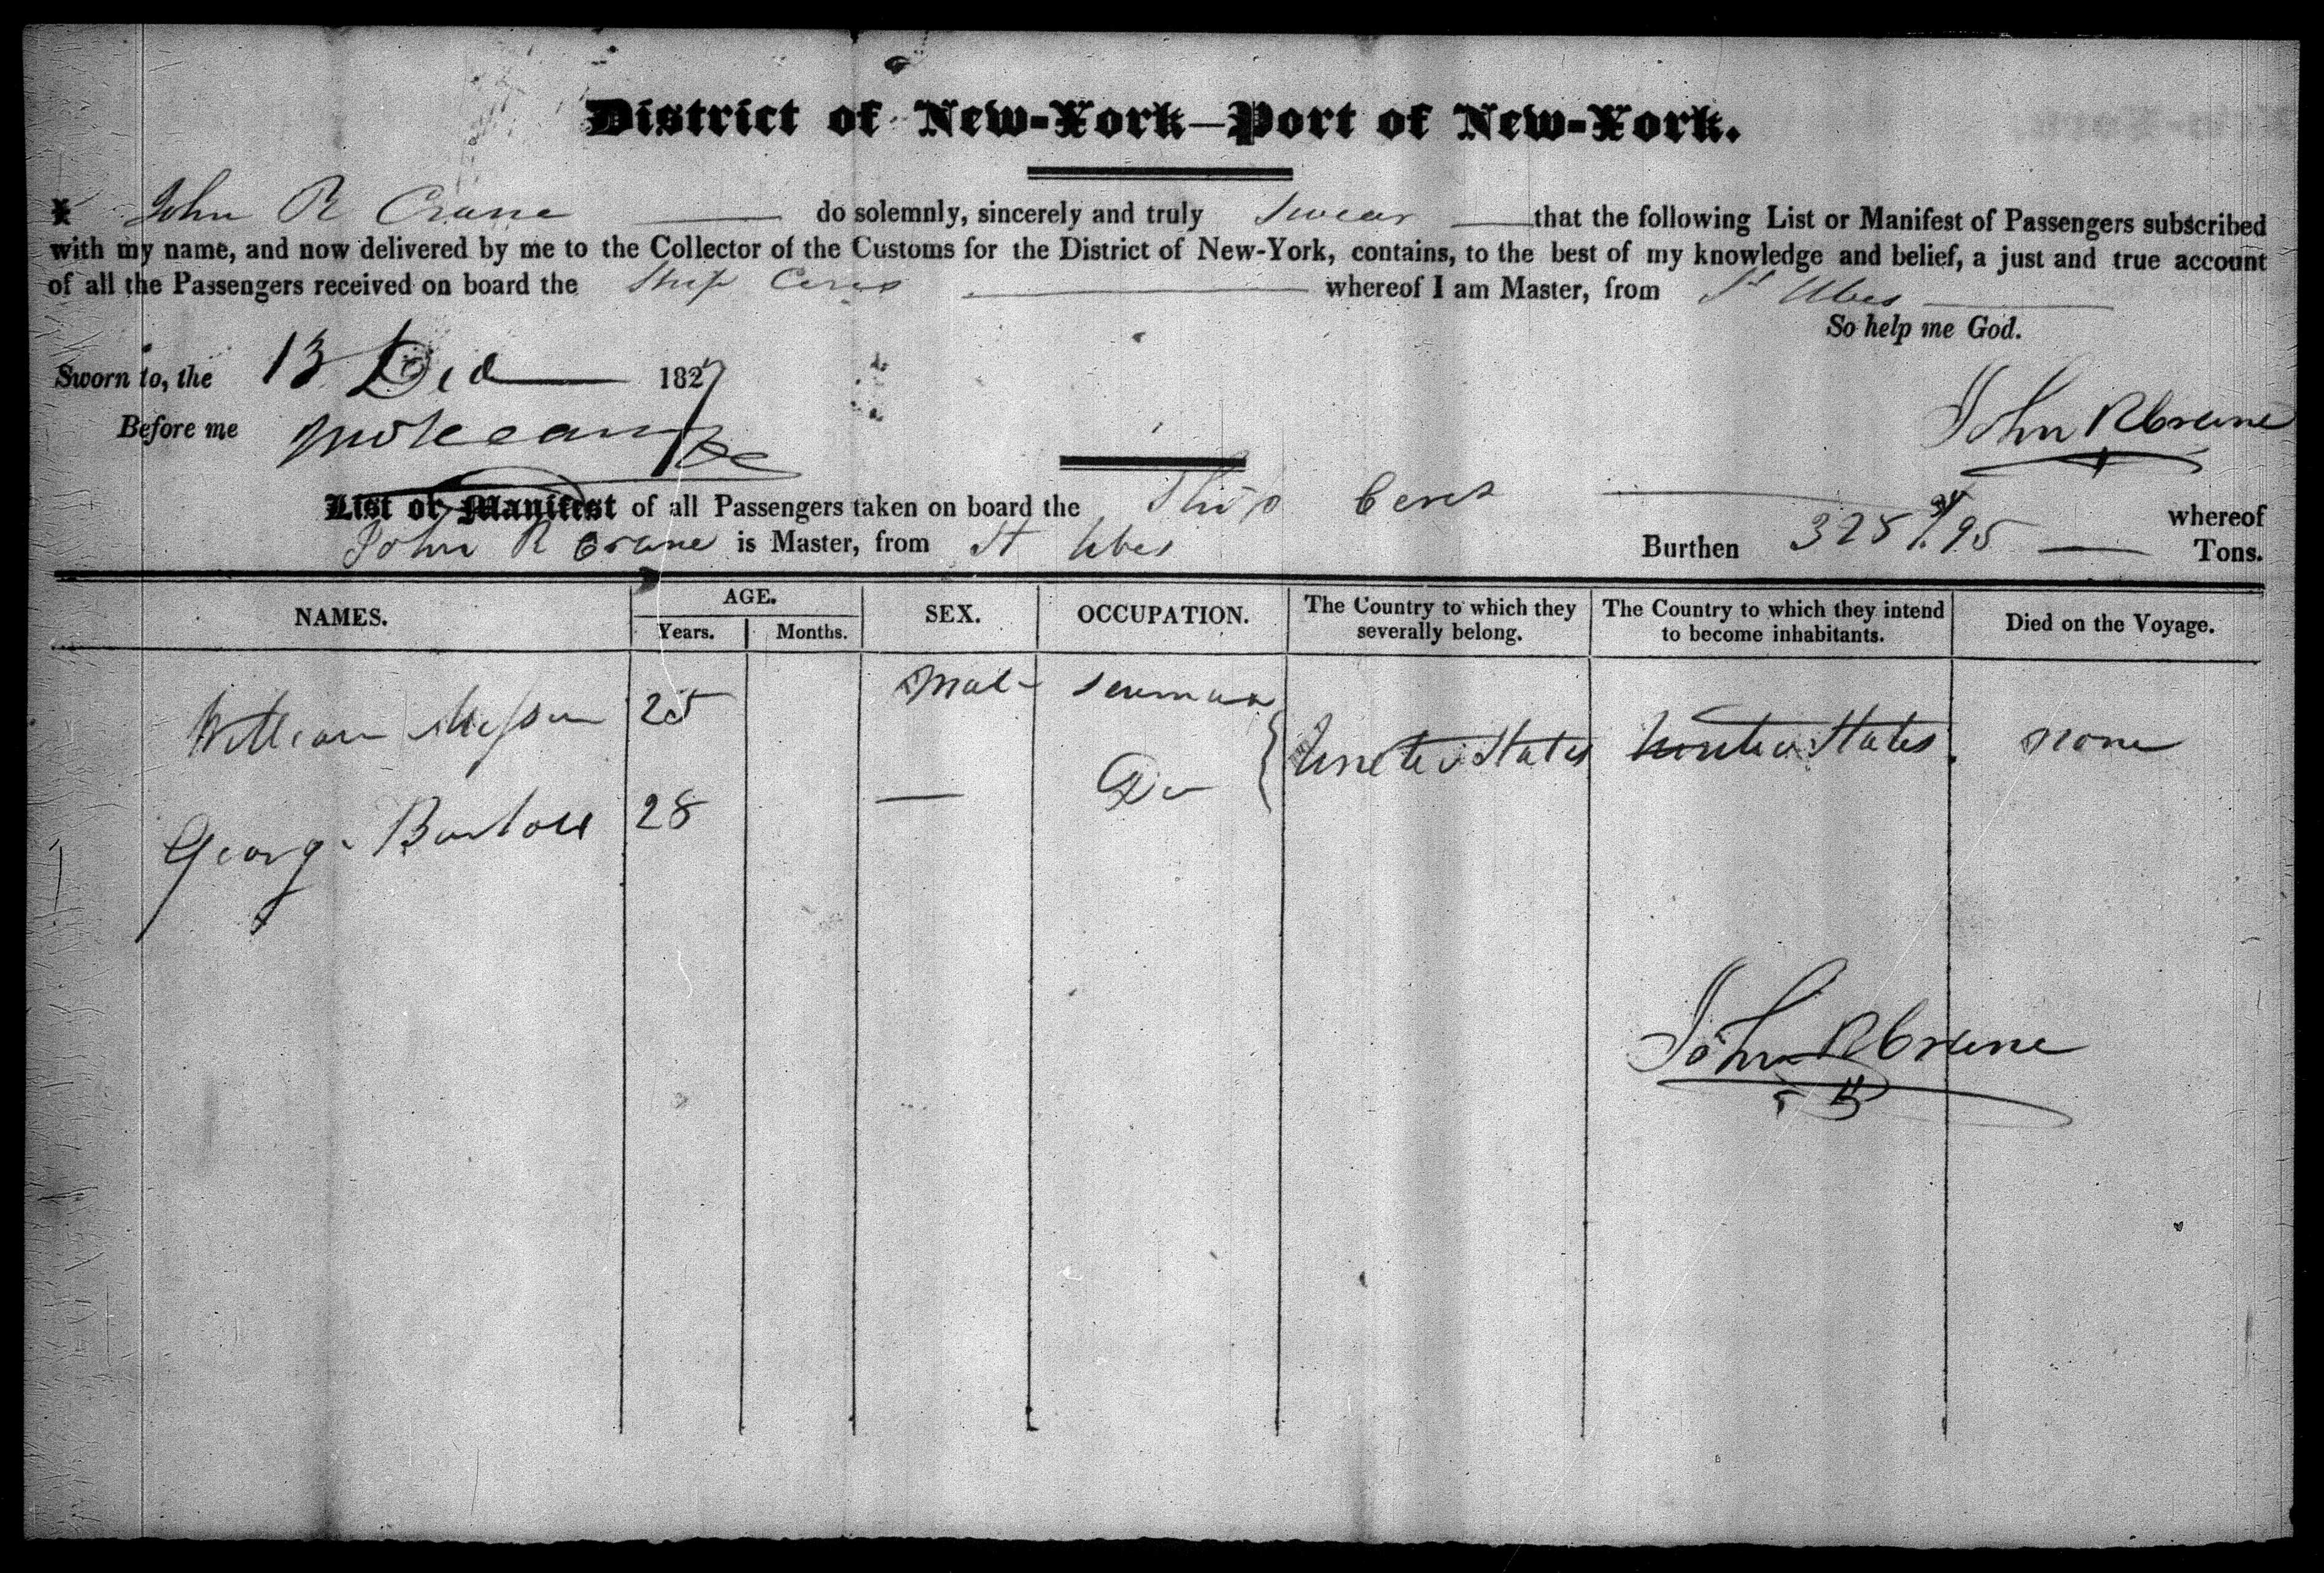 District of New-York—Port of New-York.
I John R Crane do solemnly, sincerely and truly Swear that the following List or Manifest of Passengers subscribed
with my name, and now delivered by me to the Collector of the Customs for the District of New-York, contains, to the best of my knowledge and belief, a just and true account
of all the Passengers received on board the Ship Ceres whereof I am Master, from St Ubes
So help me God.
Sworn to, the 13 Dec 1827
Before me
John R Crane
List or Manifest of all Passengers taken on board the Ship Ceres whereof
John R Crane is Master, from St Ubes Burthen 325 94/95 Tons.
NAMES. AGE. Years. Months. SEX. OCCUPATION. The Country to which they severally belong. The Country to which they intend to become inhabitants. Died on the Voyage.
William 25 Male Seaman United States United States none
George 28 — Do
John R Crane